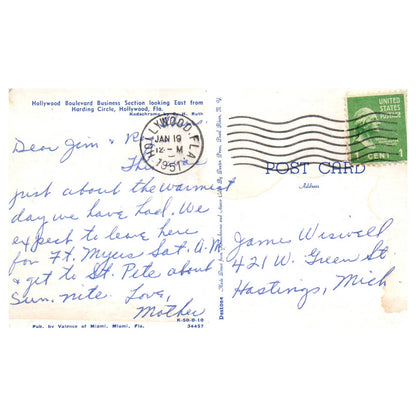 Hollywood Boulevard Business Section looking East from
Harding Circle, Hollywood, Fla.
Kodachrome by Ruth
HOLLYWOOD, FLA.
JAN 19
12 - M
1951
Dear Jim &
This is
just about the warmest
day we have had. We
expect to leave here
for Ft. Myers Sat. A.M.
& get to St. Pete about
Sun. nite. Love,
Mother
K-50-D-10
Pub. by Valence of Miami, Miami, Fla.
34457
Dextone
Made Direct from Kodachrome and Ansco Color by Dexter Press, Pearl River, N. Y.
UNITED
STATES
POSTAGE
1 CENT 1
POST CARD
Address
James Wiswell
421 W. Green St.
Hastings, Mich.